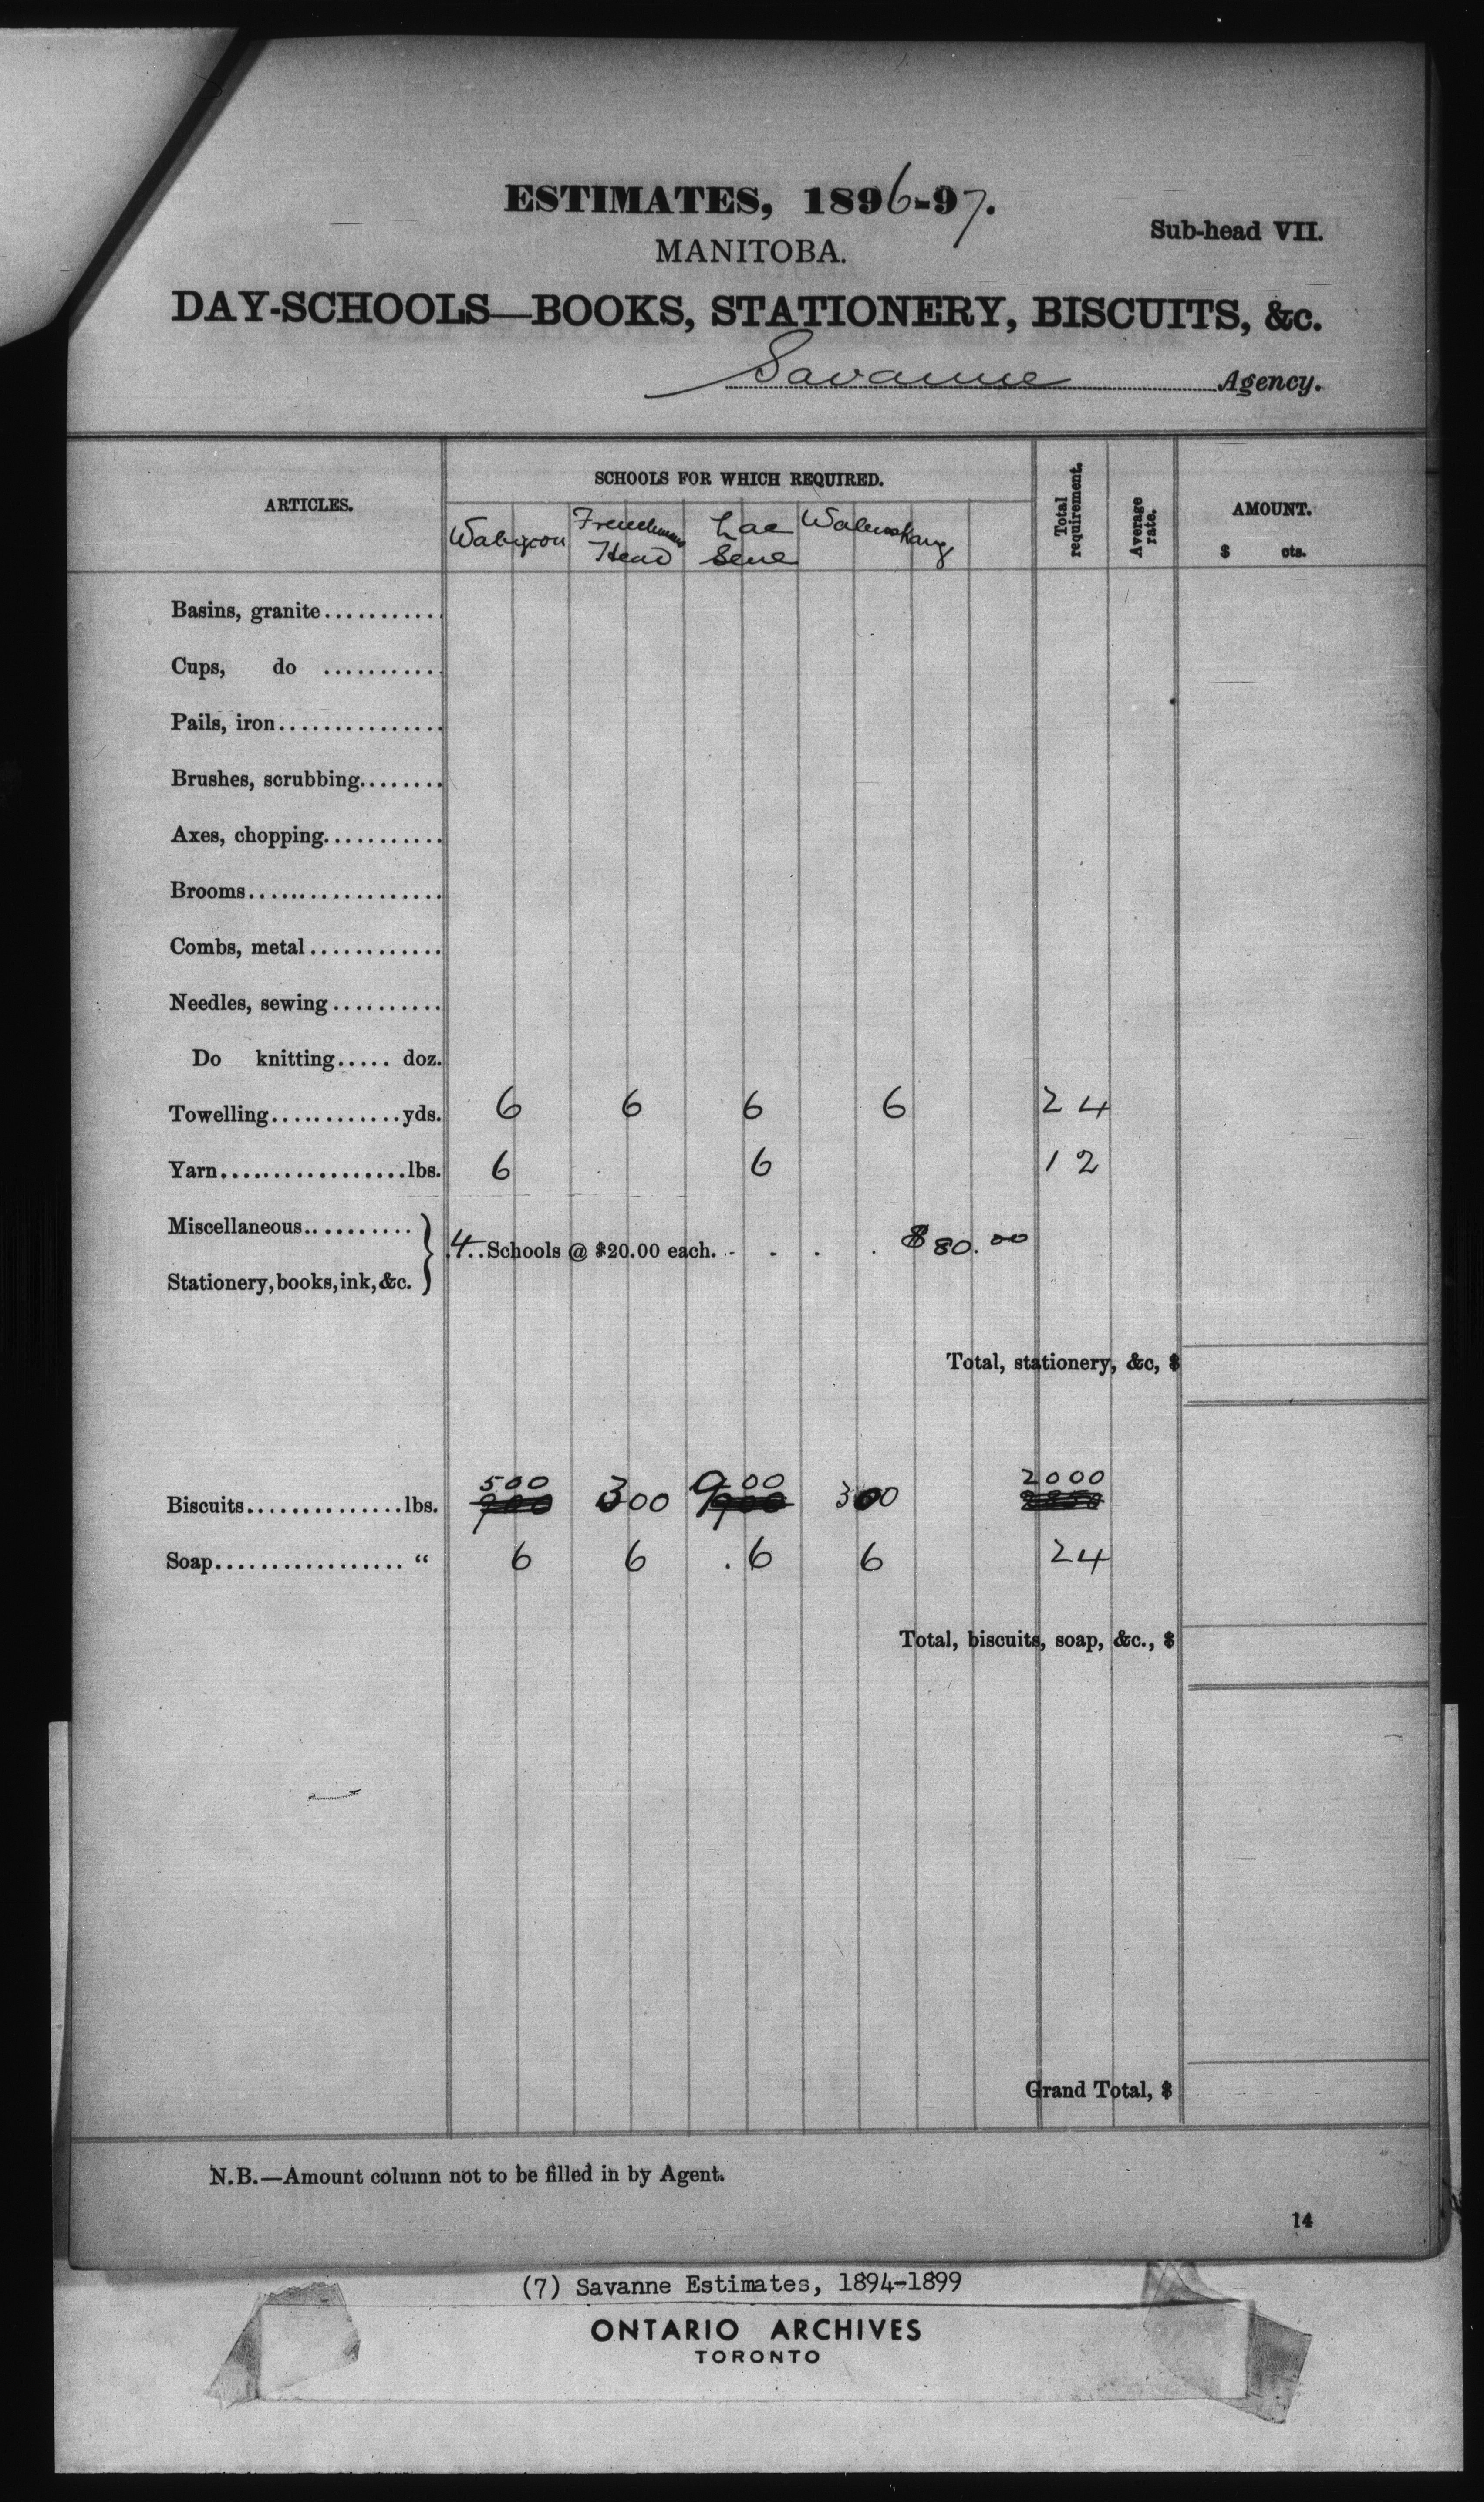 ESTIMATES, 1896-97.
Sub-head VII.
MANITOBA.
DAY-SCHOOLS—BOOKS, STATIONERY, BISCUITS, &c.
Savanne Agency.
ARTICLES.
SCHOOLS FOR WHICH REQUIRED.
Total requirement.
Average rate.
AMOUNT.
$ cts.
Wabigoon Frenchmans Head Lac Seul Wabuskang
Basins, granite...........
Cups, do ...........
Pails, iron...............
Brushes, scrubbing........
Axes, chopping...........
Brooms..................
Combs, metal............
Needles, sewing..........
Do knitting..... doz.
Towelling............yds. 6 6 6 6 24
Yarn.................lbs. 6 6 12
Miscellaneous..........
4..Schools @ $20.00 each. . . . . $80.00
Stationery, books, ink, &c.
Total, stationery, &c, $
500 900 2000
Biscuits..............lbs. 900 300 900 300
Soap................. “ 6 6 6 6 24
Total, biscuits, soap, &c., $
Grand Total, $
N.B.—Amount column not to be filled in by Agent.
14
(7) Savanne Estimates, 1894-1899
ONTARIO ARCHIVES
TORONTO